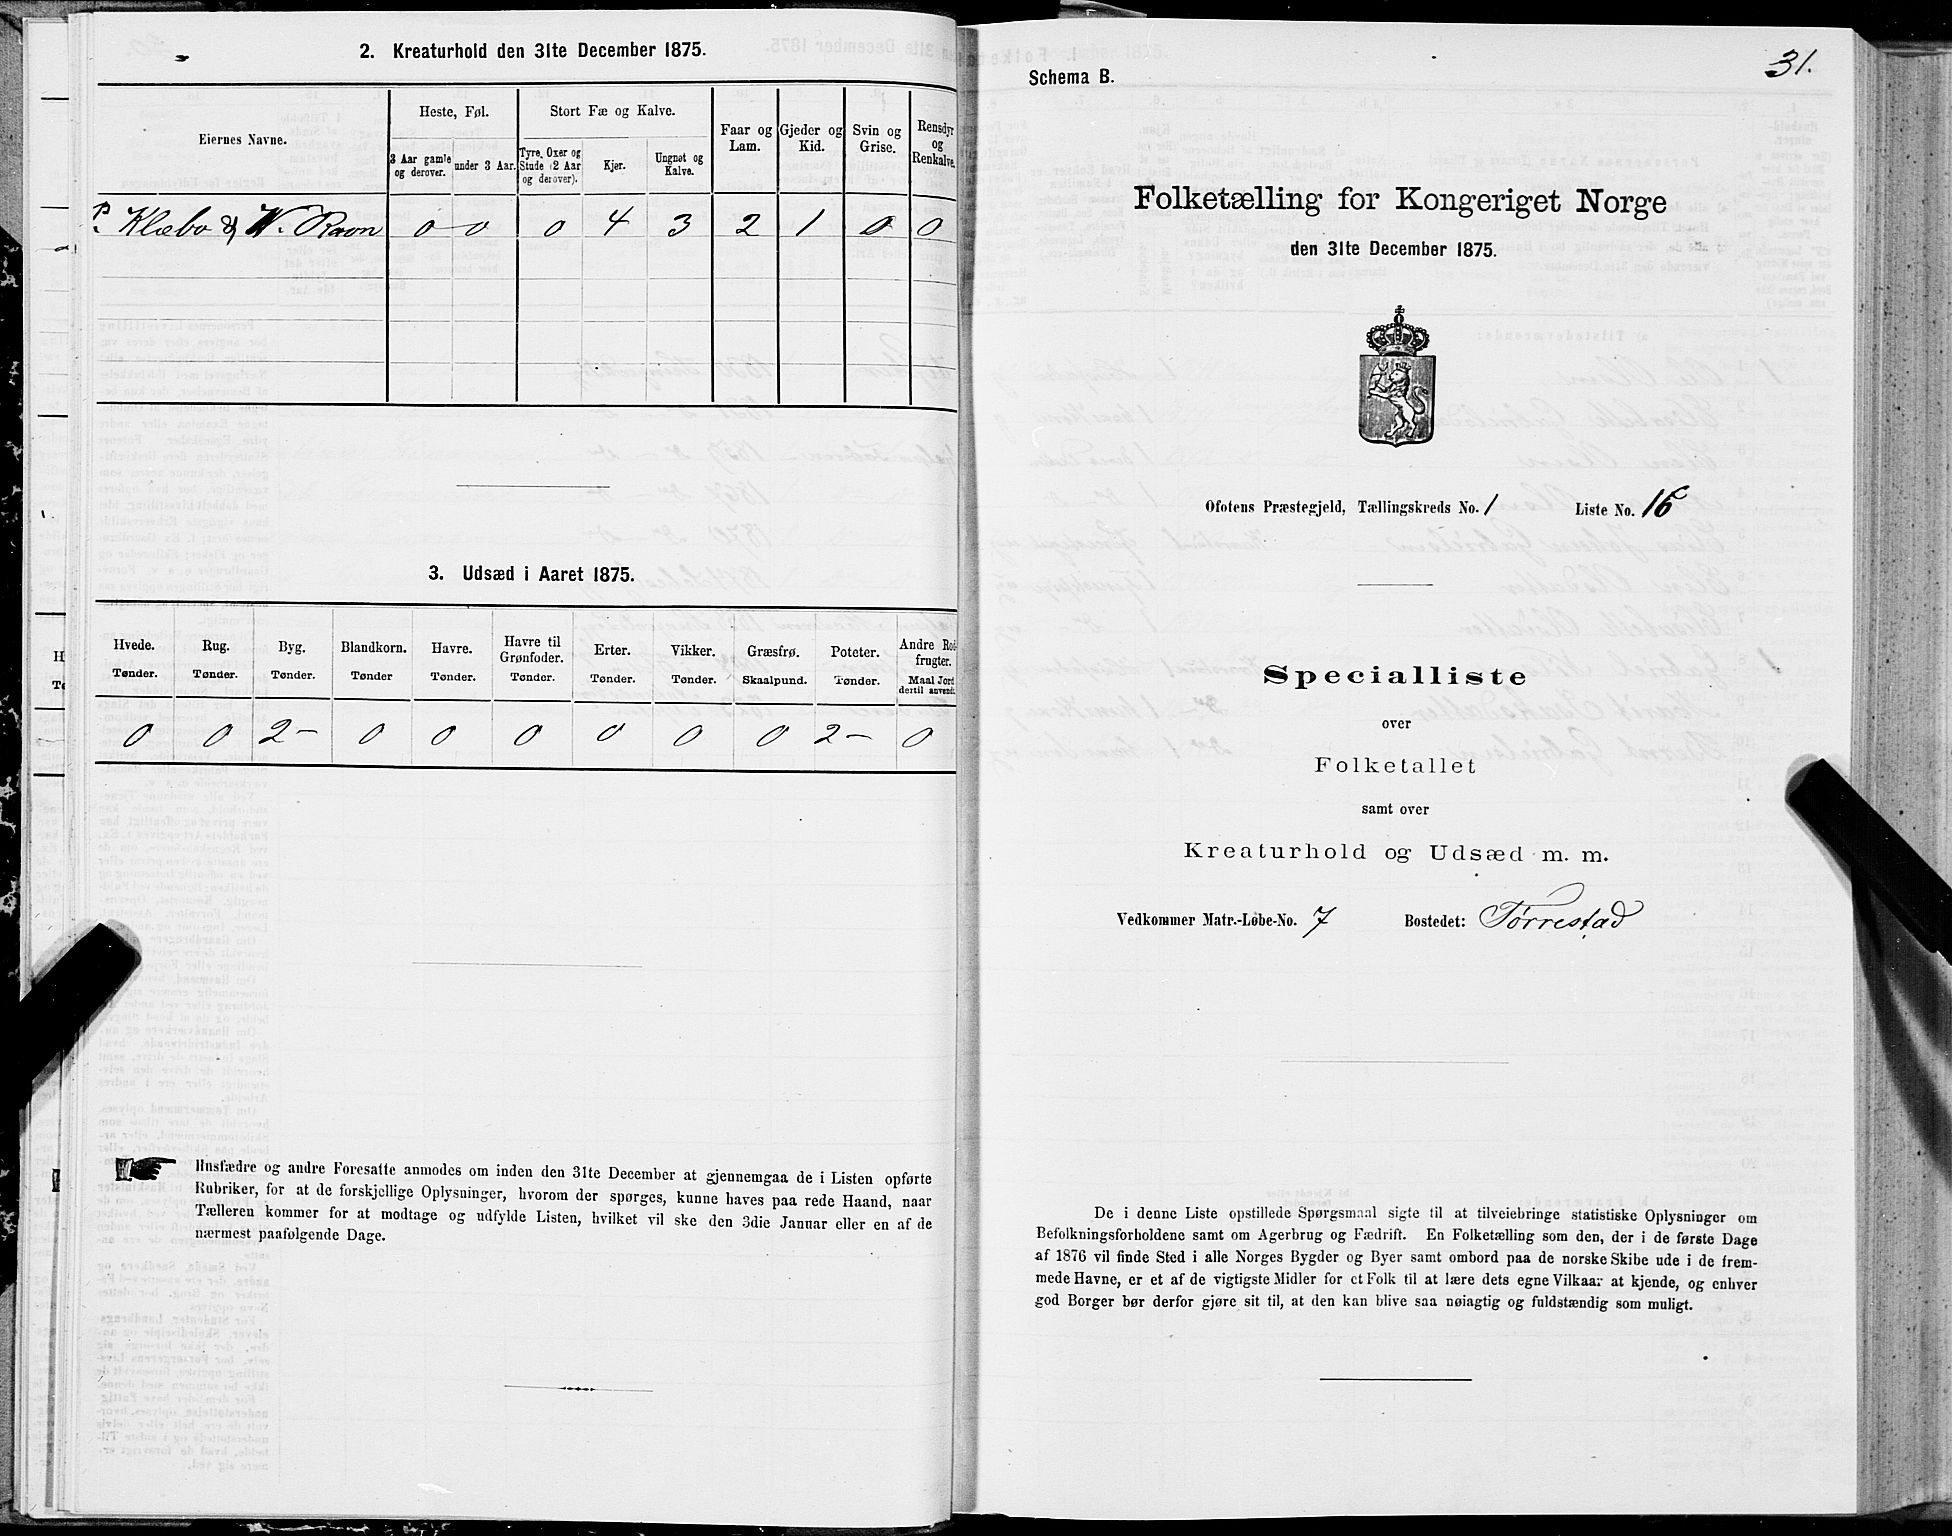 2. Kreaturhold den 31te December 1875.
Eiernes Navne.
Heste, Føl.
Stort Fæ og Kalve.
Faar og Lam.
Gjeder og Kid.
Svin og Grise.
Rensdyr og Renkalve.
3 Aar gamle og derover.
under 3 Aar.
Tyre, Oxer og Stude (2 Aar og derover).
Kjør.
Ungnøt og Kalve.
P. Klæbo & W. Ravn 0 0 0 4 3 2 1 0 0
3. Udsæd i Aaret 1875.
Hvede. Rug. Byg. Blandkorn. Havre. Havre til Grønfoder. Erter. Vikker. Græsfrø. Poteter. Andre Rodfrugter.
Tønder. Tønder. Tønder. Tønder Tønder. Tønder. Tønder. Tønder. Skaalpund. Tønder. Maal Jord dertil anvendt.
0 0 2- 0 0 0 0 0 0 2- 0
Husfædre og andre Foresatte anmodes om inden den 31te December at gjennemgaa de i Listen opførte
Rubriker, for at de forskjellige Oplysninger, hvorom der spørges, kunne haves paa rede Haand, naar
Tælleren kommer for at modtage og udfylde Listen, hvilket vil ske den 3die Januar eller en af de
nærmest paafølgende Dage.
31.
Schema B.
Folketælling for Kongeriget Norge
den 31te December 1875.
Ofotens Præstegjeld, Tællingskreds No. 1 Liste No. 16
Specialliste
over
Folketallet
samt over
Kreaturhold og Udsæd m. m.
Vedkommer Matr.-Løbe-No. 7 Bostedet: Tørrestad
De i denne Liste opstillede Spørgsmaal sigte til at tilveiebringe statistiske Oplysninger om
Befolkningsforholdene samt om Agerbrug og Fædrift. En Folketælling som den, der i de første Dage
af 1876 vil finde Sted i alle Norges Bygder og Byer samt ombord paa de norske Skibe ude i de frem-
mede Havne, er et af de vigtigste Midler for et Folk til at lære dets egne Vilkaar at kjende, og enhver
god Borger bør derfor gjøre sit til, at den kan blive saa nøiagtig og fuldstændig som muligt.